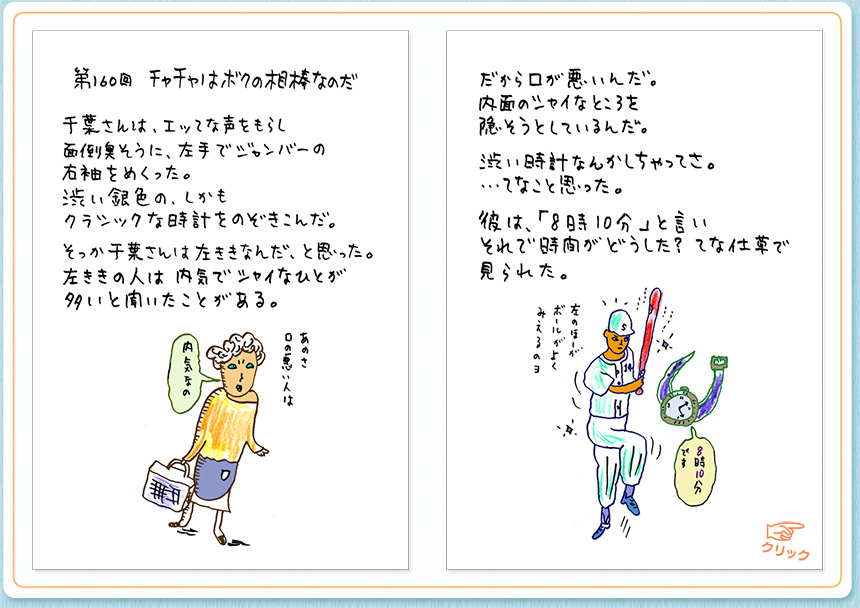 第160回 チャチャはボクの相棒なのだ
千葉さんは、エッてな声をもらし
面倒臭そうに、左手でジャンバーの
右袖をめくった。
渋い銀色の、しかも
クラシックな時計をのぞきこんだ。
そっか千葉さんは左ききなんだ、と思った。
左ききの人は 内気でシャイなひとが
多いと聞いたことがある。
あのさ
口の悪い人は
内気なの
だから口が悪いんだ。
内面のシャイなところを
隠そうとしているんだ。
渋い時計なんかしちゃってさ。
…てなこと思った。
彼は、「8時10分」と言い
それで時間がどうした? てな仕草で
見られた。
左のほうが
ボールがよく
みえるのヨ
8時10分
です
クリック